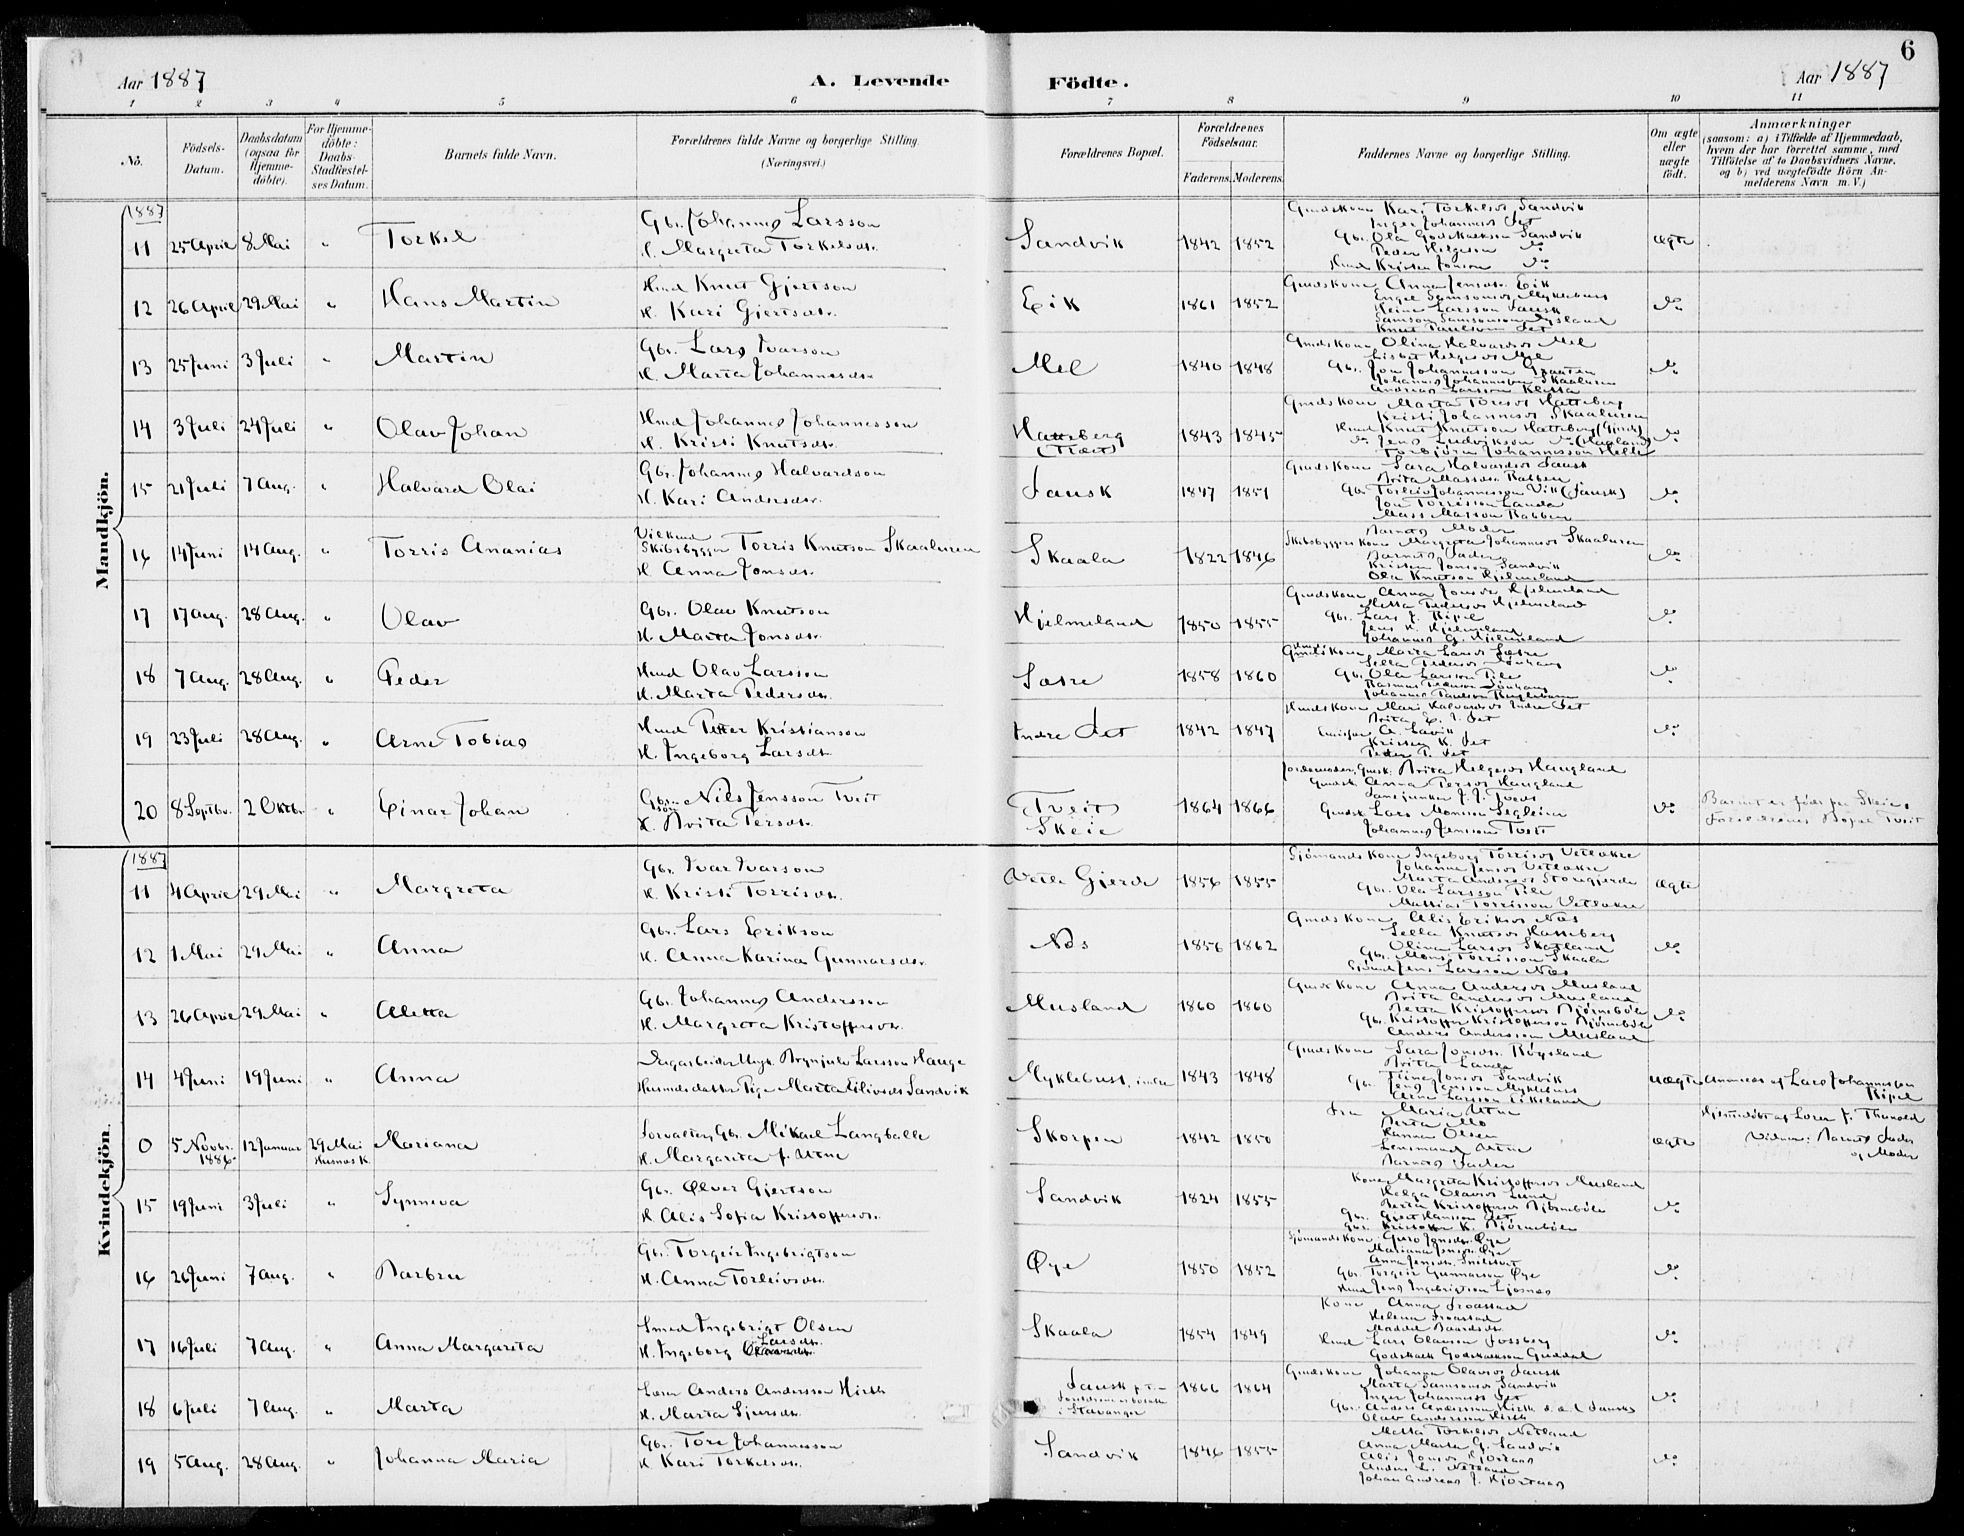 6
Aar 1887
A. Levende Födte.
Aar 1887
1 2 3 4 5 6 7 8 9 10 11
No.
Födsels-Datum.
Daabsdatum (ogsaa for Hjemme-döbte).
For Hjemme-döbte: Daabs-Stadfæstelses Datum.
Barnets fulde Navn.
Forældrenes fulde Navne og borgerlige Stilling. (Næringsvei.)
Forældrenes Bopæl.
Forældrenes Födselsaar.
Faderens. Moderens.
Faddernes Navne og borgerlige Stilling.
Om ægte eller uægte födt.
Anmærkninger (saasom: a) i Tilfælde af Hjemmedaab, hvem der har forrettet samme, med Tilföielse af to Daabsvidners Navne, og b) ved uægtefödte Börn Anmelderens Navn m. V.)
Mandkjön.
1887
11 25 April 8 Mai " Torkel
Gbr. Johannes Larsson
H. Margreta Torkelsdtr.
Sandvik 1842 1852
Gmds Kone Kari Torkelsdt Sandvik
Inger Johannesdt det
Gbr. Ola Godskalkson Sandvik
Peder Helgeson do
Hmd Kristen Jonson do
ægte
12 26 April 29 Mai " Hans Martin
Hmd Knut Gjertson
H. Kari Gjertsdtr.
Eik 1861 1852
Gmds Kone Anna Jensdtr. Eik
Engel Samsonsdt Myklebust
Heine Larsson Sausk
Knut Paulson det
do
13 25 Juni 3 Juli " Martin
Gbr. Lars Ivarson
H. Marta Johannesdtr.
Mel 1840 1848
Gmds Kone Olina Halvardsdt Mel
Lisbet Helgesdt Mel
Gbr. Jon Johannesson
Johannes Johannesson Skaaluren
Andreas Larsson
do
14 3 Juli 24 Juli " Olav Johan
Hmd Johannes Johannesson
H. Kristi Knutsdtr.
Hatteberg
(Træet)
1843 1845
Gmds Kone Marta Toresdt Hatteberg
Kristi Johannesdt Skaaluren
Hmd Knut Knutson Hatteberg
do Jens Ludvikson do
Torbjörn Johannesson Helle
do
15 21 Juli 7 Aug. " Halvard Olai
Gbr. Johannes Halvardson
H. Kari Andersdtr.
Sausk 1847 1851
Gmds Kone Sara Halvardsdt Sausk
Brita Massdt Rabben
Gbr. Torleiv Johannesson Vik (Sausk)
Jon Torrisson Landa
Mass Masson Rabben
do
16 14 Juni 14 Aug. " Torris Ananias
Skibsbygger Torris Knutson Skaaluren
H. Anna Jonsdtr.
Skaala 1822 1846
Barnets Moder
Skibsbyggers Kone Margreta Johannesdt Skaaluren
Barnets Fader
Kristen Jonson Sandvik
Ola Knutson Hjelmeland
do
17 17 Aug. 28 Aug. " Olav
Gbr. Olav Knutson
H. Marta Jonsdtr.
Hjelmeland 1850 1855
Gmds Kone Anna Jonsdt Hjelmeland
Metta Pedersdt Hjelmeland
Gbr. Lars J. Ripel
Jens K. Hjelmeland
Johannes G. Hjelmeland
do
18 7 Aug. 28 Aug. " Peder
Hmd Olav Larsson
H. Marta Pedersdtr.
Sætre 1858 1860
Gmds Kone Marta Larsdt Sætre
Sella Pedersdt
Gbr. Ola Larsson Tile
Rasmus Pederson
Johannes Paulson
do
19 23 Juli 28 Aug. " Arne Tobias
Hmd Petter Kristianson
H. Ingeborg Larsdtr.
Indre det 1842 1847
Hmds Kone Mari Halvardsdt Indre det
Brita E. I. det
A. Lavik
Kristen K. det
Peder P. det
do
20 8 Septbr. 2 Oktbr. " Einar Johan
Gbr. Nils Jensson Tveit
H. Brita Persdtr.
Tveit
Skeie
1864 1866
Jordemoder, Gmdsk. Brita Helgesdt Haugland
Gmdsk. Anna Persdt Haugland
J. J. Tveit
Gmdsk. Lars Monsson Seglem
Johannes Jensson Tveit
do
Barnet er födt paa Skeie,
Forældrenes Bopæl Tveit
Kvindekjön.
1887
11 4 April 29 Mai " Margreta
Gbr. Ivar Ivarson
H. Kristi Torrisdtr.
Vetle Gjerde 1856 1855
Sjömands Kone Ingeborg Torrisdt Vetlokre
Johanna Jensdt Vetlokre
Marta Andersdt Storegjerde
Gbr. Ola Larsson Tile
Mattias Torrisson Vetlokre
ægte
12 1 Mai 29 Mai " Anna
Gbr. Lars Erikson
H. Anna Karina Gunnarsdtr.
Nes 1856 1862
Gmds Kone Alis Eriksdt Nes
Sella Knutsdt Hatteberg
Olina Larsdt Skatland
Gbr. Mons Torrisson Skaala
Jens Larsson Nes
do
13 26 April 29 Mai " Aletta
Gbr. Johannes Andersson
H. Margreta Kristoffersdtr.
Musland 1860 1860
Gmds Kone Anna Andersdt Musland
Brita Andersdt Musland
Berta Kristoffersdt Björneböle
Gbr. Kristoffer Kristofferson Björneböle
Anders Andersson Musland
do
14 4 Juni 19 Juni " Anna
Dagarbeider Ungk. Brynjulv Larsson Hauge
Husmdsdatter Pige Marta Eilivsdt Sandvik
Myklebust, indre 1843 1848
Gmds Kone Sara Jonsdtr. Röysland
Brita Landa
Trina Jonsdt Sandvik
Gbr. Jens Jensson Myklebust
Arne Larsson Eikeland
uægte
Anmeldt af Lars Johannesson Ripel
0 5 Novbr. 1886 12 Januar 29 Mai Husnes K. Mariana
Forvalter, Gbr. Mikael Langballe
H. Margareta f. Utne
Skorpen 1842 1850
Fru Maria Utne
Berta Mo
Hanna Olsen
Lensmand Utne
Barnets Fader
ægte
Hjemmedöbt af Lærer J. Thunold
Vidner: Barnets Fader
og Moder
15 19 Juni 3 Juli " Synneva
Gbr. Ølver Gjertson
H. Alis Sofia Kristoffersdtr.
Sandvik 1824 1855
Kone Margreta Kristoffersdt Musland
Helga Olavsdt Lund
Berta Kristoffersdt Björneböle
Gbr. Gjert Hansson det
Gbr. Kristoffer K. Björneböle
do
16 26 Juni 7 Aug. " Barbru
Gbr. Torgeir Ingebrigtson
H. Anna Torleivsdtr.
Øye 1850 1852
Sjömands Kone Guro Jonsdtr. Øye
Mariana Jensdt Øye
Anna Jensdt
Gbr. Torgeir Gunnarson Øye
Hmd Jens Ingebrigtson Ljosnes
do
17 16 Juli 7 Aug. " Anna Margareta
Smed Ingebrigt Olsen
H. Ingeborg Larsdtr.
Skaala 1854 1849
Kone Anna Froastad
Helena Froastad
Maddel Baardsdtr
Hmd Lars Olavson Fossberg
Godskalk Godskalkson Guddal
do
18 6 Juli 7 Aug. " Marta
Lærer Anders Andersson Hirth
H. Marta Sjursdtr.
Sausk p. t.
Forældrenes bosatte
i Stavanger
1866 1864
Gmds Kone Johanna Olavsdt Sausk
Marta Samsonsdt Sandvik
Inger Johannesdt det
Gbr. Anders Andersson Hirth d. æ. (Sausk)
Olav Andersson Hirth
do
19 5 Aug. 28 Aug. " Johanna Maria
Gbr. Tore Johannesson
H. Kari Torkelsdtr.
Sandvik 1846 1855
Metta Torkelsdt Netland
Anna Marta G. Sandvik
Alis Jonsdt Hjortaas
Anders L. Netland
Johan Andreas J. Hjortaas
do